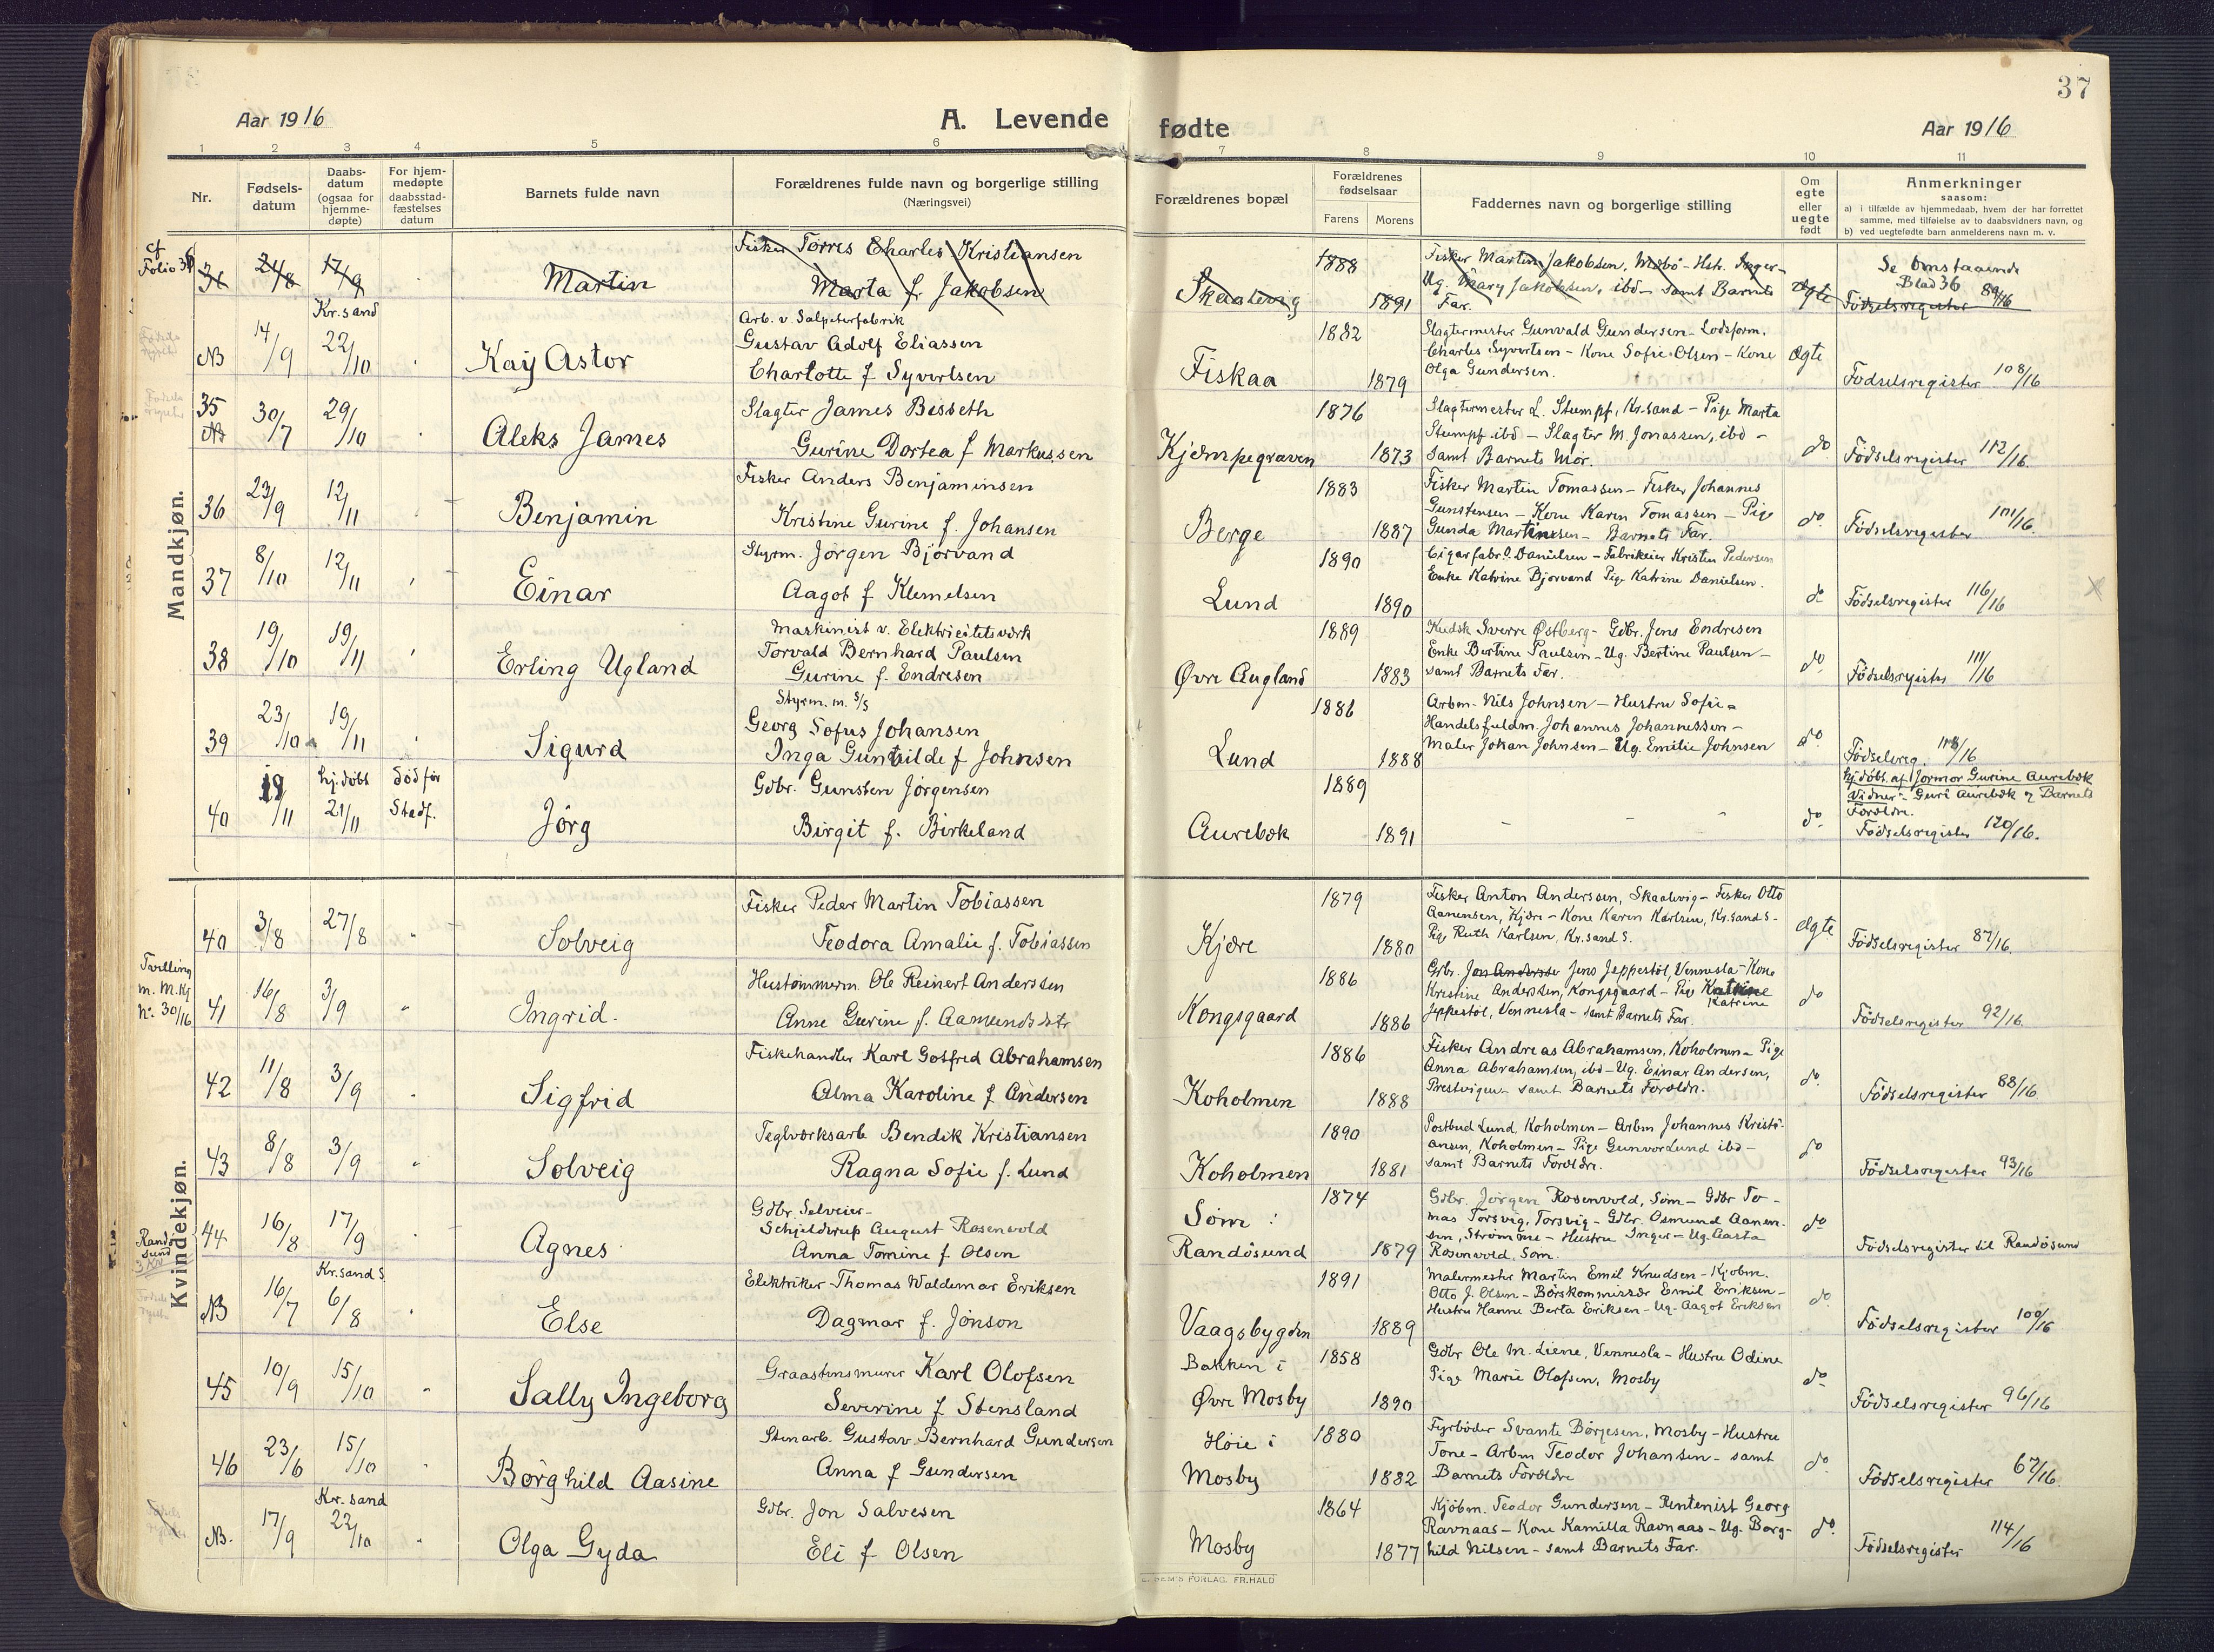 37
Aar 1916
A. Levende
fødte
Aar 1916
1 2 3 4 5 6 7 8 9 10 11
Nr.
Fødsels-
datum
Daabs-
datum
(ogsaa for
hjemme-
døpte)
For hjem-
medøpte
daabsstad-
fæstelses
datum
Barnets fulde navn
Forældrenes fulde navn og borgerlige stilling
(Næringsvei)
Forældrenes bopæl
Forældrenes
fødselsaar
Farens Morens
Faddernes navn og borgerlige stilling
Om
egte
eller
uegte
født
Anmerkninger
saasom:
a) i tilfælde av hjemmedaab, hvem der har forrettet
samme, med tilføielse av to daabsvidners navn, og
b) ved uegtefødte barn anmelderens navn m. v.
Mandkjøn.
cf
Folio 36
24/8 17/9
Martin
Fisker Torres Charles Kristiansen
Marta f. Jakobsen
Skaalevig
1888
1891
Fisker Martin Jakobsen, - Hstr. Inger -
Ug. Mary Jakobsen, ibd - samt Barnets
Far.
Ægte
Se omstaaende
Blad 36
Fødselsregister 89/16
NB 14/9
Kr.sand
22/10
Kay Astor
Arb. v. Salpeterfabrik
Gustav Adolf Eliassen
Charlotte f Syvertsen
Fiskaa
1882
1879
Slagtermester Gunvald Gundersen - Lodsform.
Charles Syvertsen - Kone Sofie Olsen - Kone
Olga Gundersen.
Ægte
Fødselsregister 108/16
35
NB
30/7 29/10
Aleks James
Slagter James Bisseth
Gurine Dortea f Markussen
Kjempegraven
1876
1873
Slagtermester L. Stumpf, Kr.sand - Pige Marta
Stumpf ibd - Slagter M. Jonassen, ibd -
samt Barnets Mor.
do
Fødselsregister 112/16.
36 23/9 12/11
Benjamin
Fisker Anders Benjaminsen
Kristine Gurine f. Johansen
Berge
1883
1887
Fisker Martin Tomassen - Fisker Johannes
Gunstensen - Kone Karen Tomassen - Pige
Gunda Martinsen - Barnets Far.
do
Fødselsregister 101/16.
37 8/10 12/11
Einar
Styrm. Jørgen Bjorvand
Aagot f Klemetsen
Lund
1890
1890
Cigarfabr. Danielsen - Fabrikeier Kristen Pedersen
Enke Katrine Bjorvand Pige Katrine Danielsen.
do
Fødselsregister 116/16
38 19/10 19/11
Erling Ugland
Maskinist v. Elektricitetsværk
Torvald Bernhard Paulsen
Gurine f. Endresen
Øvre Augland
1889
1883
Kudsk Sverre Østberg - Gdbr. Jens Endresen
Enke Bertine Paulsen - Ug. Bertine Paulsen -
samt Barnets Far.
do
Fødselsregister 111/16
39 23/10 19/11
Sigurd
Styrm. m. S/S
Georg Sofus Johansen
Inga Gunhilde f Johnsen
Lund
1886
1888
Arbm. Nils Johnsen - Hustru Sofie -
Handelsfuldm. Johannes Johannessen -
Maler Johan Johnsen - Ug. Emilie Johnsen
do
Fødselsreg. 118/16
40 19/11
hj.døbt
21/11
død før
Stadf.
Jørg
Gdbr. Gunsten Jørgensen
Birgit f. Birkeland
Aurebæk
1889
1891
do.
hj.døbt af Jormor Gurine Aurebæk
Vidner: Guri Aurebæk og Barnets
Foreldre.
Fødselsregister 120/16.
Kvindekjøn.
40 3/8 27/8
Solveig
Fisker Peder Martin Tobiassen
Teodora Amalie f. Tobiassen
Kjære
1879
1880
Fisker Anton Anderssen, Skaalevig - Fisker Otto
Aanensen, Kjære - Kone Karen Karlsen, Kr.sand S -
Pige Ruth Karlsen, Kr.sand S.
Ægte
Fødselsregister 87/16.
Tvilling
m. M.Kj
No. 30/16
41 16/8 3/9
Ingrid.
Hustømmerm. Ole Reinert Anderssen
Anne Gurine f. Aamundsdtr
Kongsgaard
1886
1886
Grbr. Jon Anderss Jens Jeppestøl, Vennesla - Kone
Kristine Anderssen, Kongsgaard - Pige Katrine
Katrine
Jeppestøl, Vennesla - samt Barnets Far.
do
Fødselsregister 92/16.
42 11/8 3/9
Sigfrid
Fiskehandler Karl Gotfred Abrahamsen
Alma Karoline f Andersen
Koholmen
1886
1888
Fisker Andreas Abrahamsen, Koholmen - Pige
Anna Abrahamsen, ibd - Ug. Einar Andersen,
Prestvigen - samt Barnets Foreldre.
do.
Fødselsregister 88/16.
43 8/8 3/9
Solveig
Teglværksarb Bendik Kristiansen
Ragna Sofie f. Lund
Koholmen
1890
1881
Postbud Lund, Koholmen - Arbm Johannes Kristi-
ansen, Koholmen - Pige Gunvor Lund ibd -
samt Barnets Foreldre.
do
Fødselsregister 93/16
Randø
sund
44 16/8 17/9
Agnes
Gdbr. Selveier -
Schjelderup August Rosenvold
Anna Tomine f. Olsen
Søm i
Randøsund
1874
1879
Gdbr. Jørgen Rosenvold, Søm - Gdbr To -
mas Torsvig, Torsvig - Gdbr. Osmund Aanen-
sen, Strømme - Hustru Inger - Ug. Aasta
Rosenvold, Søm.
do
Fødselsregister til Randøsund
NB 16/7
Kr.sand S
6/8
Else
Elektriker Thomas Waldemar Eriksen
Dagmar f. Jonson
Vaagsbygden
1891
1889
Malermester Martin Emil Knudsen - Kjøbm.
Otto J. Olsen - Børskommissær Emil Eriksen -
Hustru Hanne Berta Eriksen - Ug. Aagot Eriksen
do.
Fødselsregister 100/16
45 10/9 15/10
Sally Ingeborg
Graastensmurer Karl Olofsen
Severine f Stensland
Bakken i
Øvre Mosby
1858
1890
Gdbr Ole M. Liene, Vennesla - Hustru Odine
Pige Marie Olofsen, Mosby
do
Fødselsregister 96/16
46 23/6 15/10
Borghild Aasine
Stenarb. Gustav Bernhard Gundersen
Anna f Gundersen
Høie i
Mosby
1880
1882
Fyrbøder Svante Børjesen, Mosby - Hustru
Tone - Arbm Teodor Johansen - samt
Barnets Foreldre
do.
Fødselsregister 67/16.
NB. 17/9
Kr. sand
22/10
Olga Gyda
Gdbr. Jon Salvesen
Eli f Olsen
Mosby
1864
1877
Kjøbm. Teodor Gundersen - Rentenist Georg
Ravnaas - Kone Kamilla Ravnaas - Ug. Borg-
hild Nilsen - samt Barnets Far.
do.
Fødselsregister 114/16
SEM'S FORLAG. FR.HALD